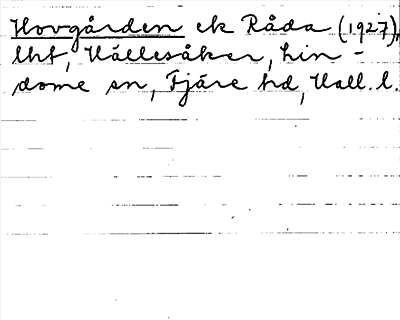 Hovgården ek Råda (1927),
lht, Hällesåker, Lin-
dome sn, Fjäre hd, Hall. l.